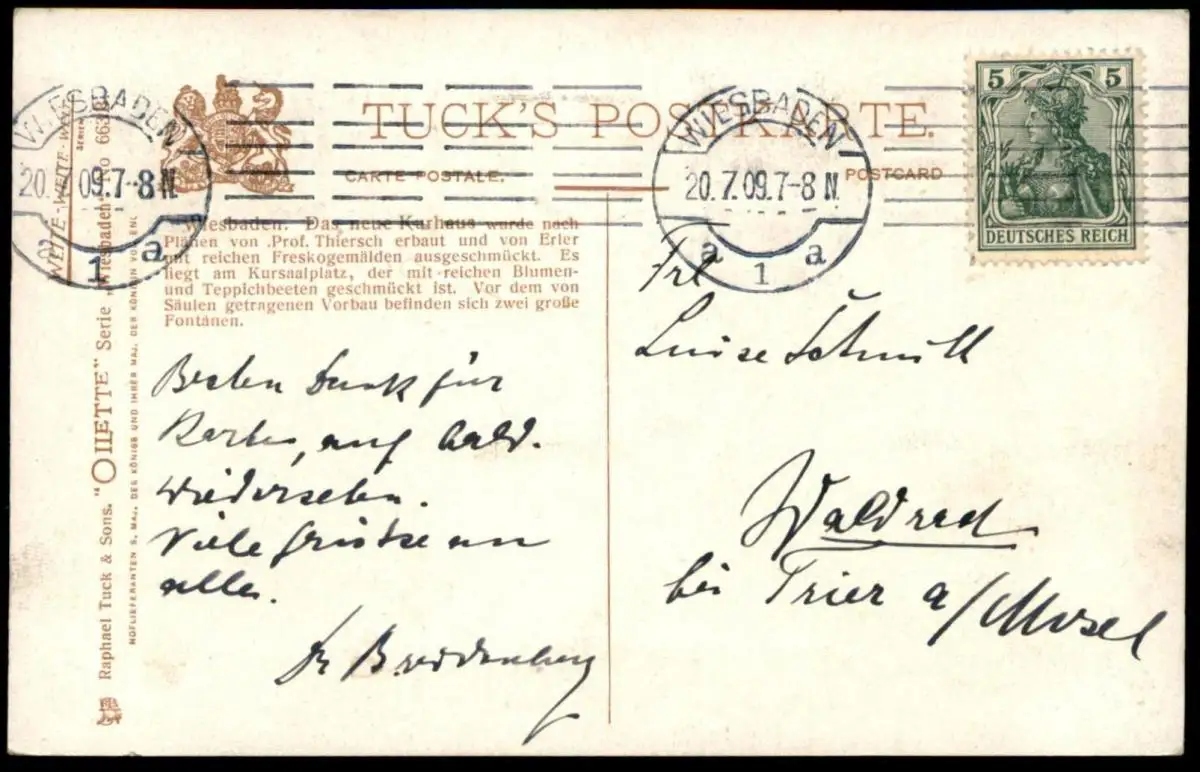 TUCK'S POSTKARTE.
CARTE POSTALE. POSTCARD
WIESBADEN
20. 7.09.7-8 N.
1 a
WIESBADEN
20.7.09.7-8 N.
a 1 a
5 5
DEUTSCHES REICH
Wiesbaden. Das neue Kurhaus wurde nach
Plänen von Prof. Thiersch erbaut und von Erler
mit reichen Freskogemälden ausgeschmückt. Es
liegt am Kursaalplatz, der mit reichen Blumen-
und Teppichbeeten geschmückt ist. Vor dem von
Säulen getragenen Vorbau befinden sich zwei große
Fontänen.
Besten Dank für
Karten, auf bald.
Wiedersehen.
Viele Grüsse an
alle.
Frl
Luise Schmitt
Waldrach
bei Trier a/Mosel
Raphael Tuck & Sons. "OILETTE" Serie „Wiesbaden"
HOFLIEFERANTEN S. MAJ. DES KÖNIGS UND IHRER MAJ. DER KÖNIGIN VON ENGL